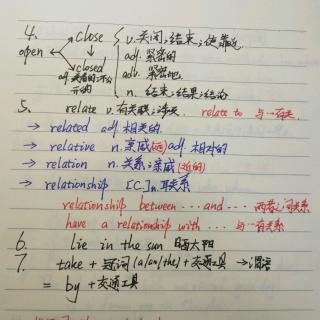 4. close v. 关闭;结束;使靠近
open adj. 紧密的
closed adv. 紧密地
adj. 关着的;不公开的 n. 结束;结果;结论
5. relate v. 有关联;涉及. relate to 与…有关.
→ related adj. 相关的
→ relative n. 亲戚(远) adj. 相对的
→ relation n. 关系;亲戚(近的)
→ relationship [C]n. 关系
relationship between ... and ... 两者之间关系
have a relationship with ... 与…有关系
6. lie in the sun 晒太阳
7. take + 冠词 (a/an/the) + 交通工具 →谓语
= by + 交通工具